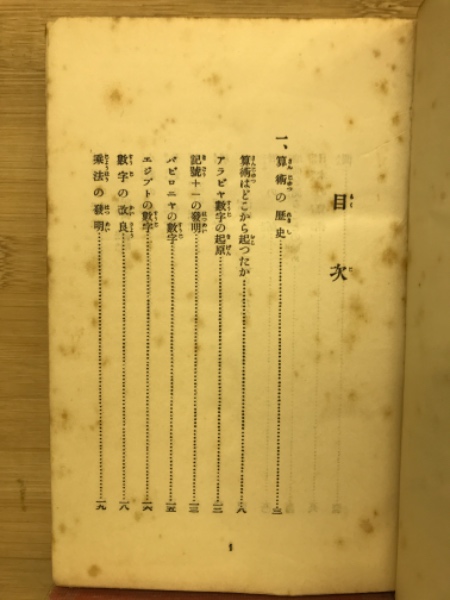 目次
一、算術の歴史…三
算術はどこから起つたか…八
アラビヤ數字の起原…一二
記號＋－の發明…一三
バビロニヤの數字…一五
エジプトの數字…一六
數字の改良…一八
乘法の發明…一九
1